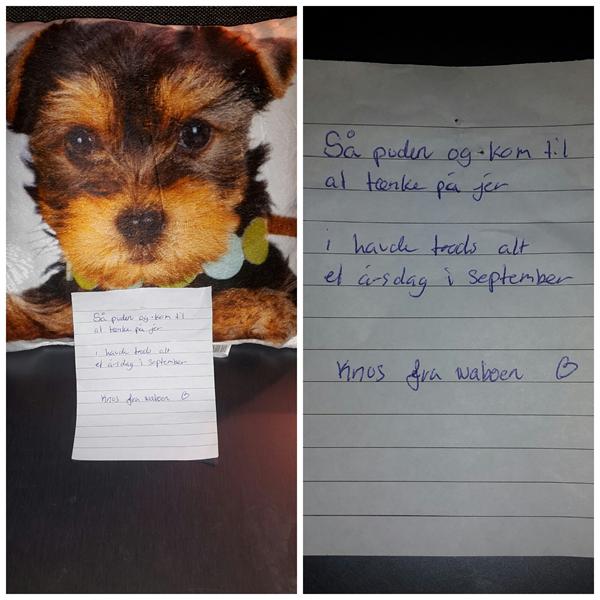 Så puden og kom til
at tænke på jer
i havde trods alt
et årsdag i september
Knus fra naboen
Så puden og kom til
at tænke på jer
i havde trods alt
et årsdag i september
Knus fra naboen